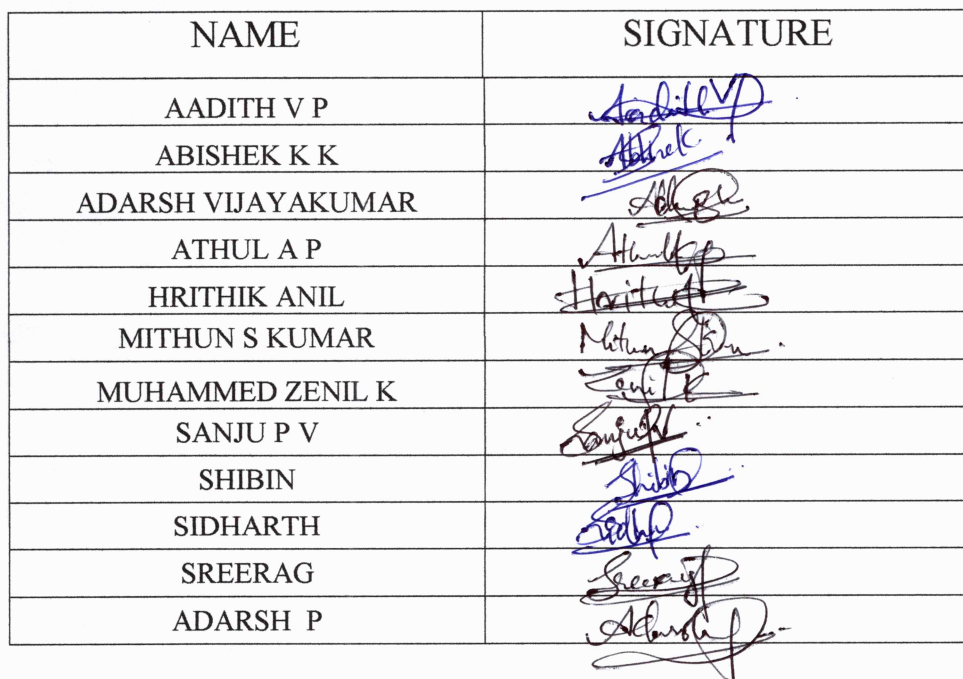 NAME SIGNATURE
AADITH V P Aadith V P
ABISHEK K K Abhishek
ADARSH VIJAYAKUMAR
ATHUL A P Athul A p
HRITHIK ANIL
MITHUN S KUMAR Mithun
MUHAMMED ZENIL K Zenil K
SANJU P V Sanju P V
SHIBIN Shibin
SIDHARTH Sidh
SREERAG Sreerag
ADARSH P Adarsh P